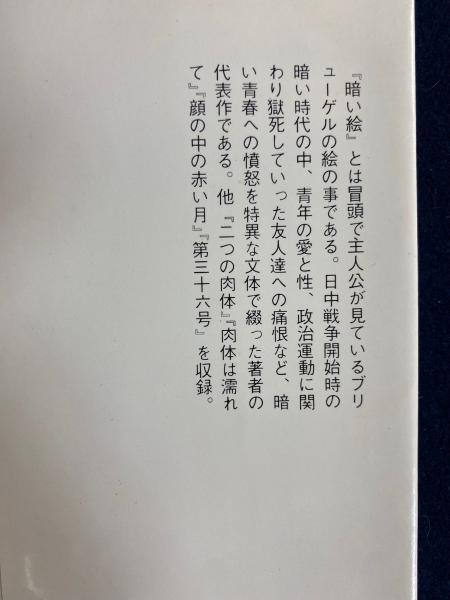 『暗い絵』とは冒頭で主人公が見ているブリ
ューゲルの絵の事である。日中戦争開始時の
暗い時代の中、青年の愛と性、政治運動に関
わり獄死していった友人達への痛恨など、暗
い青春への憤怒を特異な文体で綴った著者の
代表作である。他『二つの肉体』『肉体は濡れ
て』『顔の中の赤い月』『第三十六号』を収録。